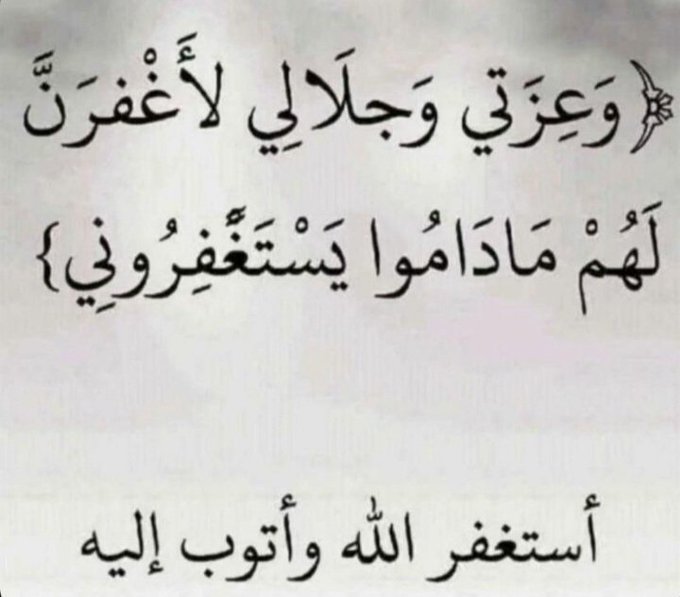 ﴿ وَعِزَتي وَجلَالِي لأَغْفرَنَّ
لَهُمْ مَادَامُوا يَسْتَغْفِرُونِي}
أستغفر الله وأتوب إليه